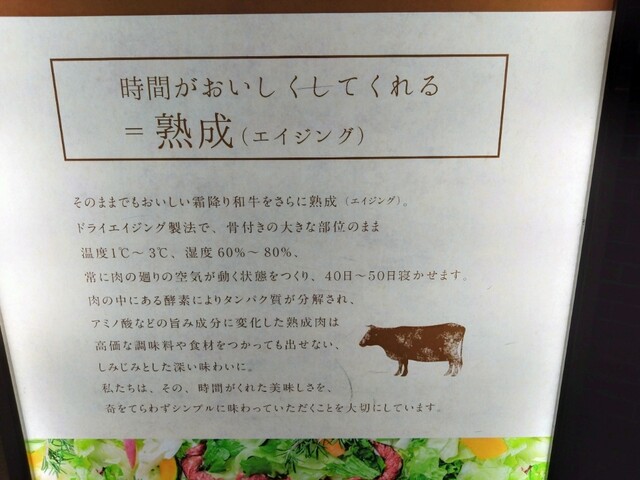 時間がおいしくしてくれる
=熟成(エイジング)
そのままでもおいしい霜降り和牛をさらに熟成(エイジング)。
ドライエイジング製法で、骨付きの大きな部位のまま
温度1℃〜3℃、湿度60%〜80%、
常に肉の廻りの空気が動く状態をつくり、40日〜50日寝かせます。
肉の中にある酵素によりタンパク質が分解され、
アミノ酸などの旨み成分に変化した熟成肉は
高価な調味料や食材をつかっても出せない、
しみじみとした深い味わいに。
私たちは、その、時間がくれた美味しさを、
奇をてらわずシンプルに味わっていただくことを大切にしています。